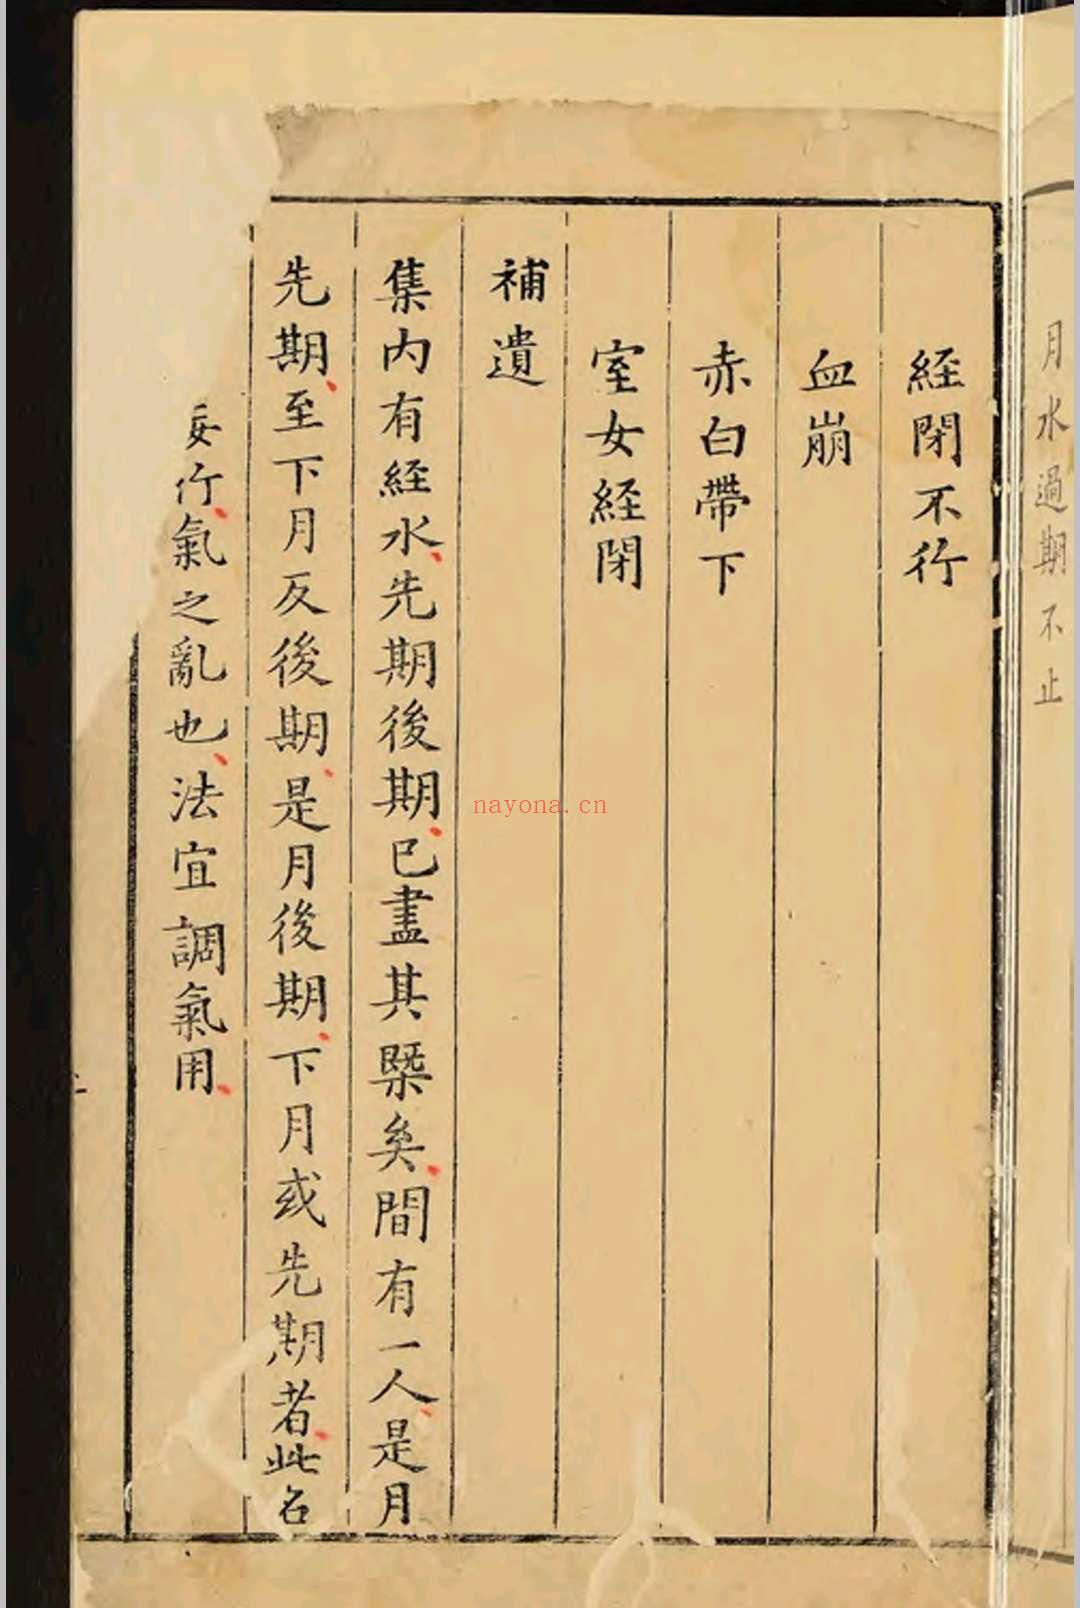 月水過期不止
經閉不行
血崩
赤白帶下
室女經閉
補遺
集內有經水、先期後期、已盡其槩矣、間有一人、是月
先期、至下月反後期、是月後期、下月或先期者、此名
妄行、氣之亂也、法宜調氣用、
nayona.cn